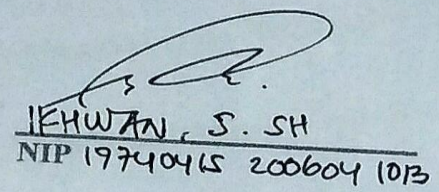 IKHWAN, S. SH
NIP 19740415 200604 1013